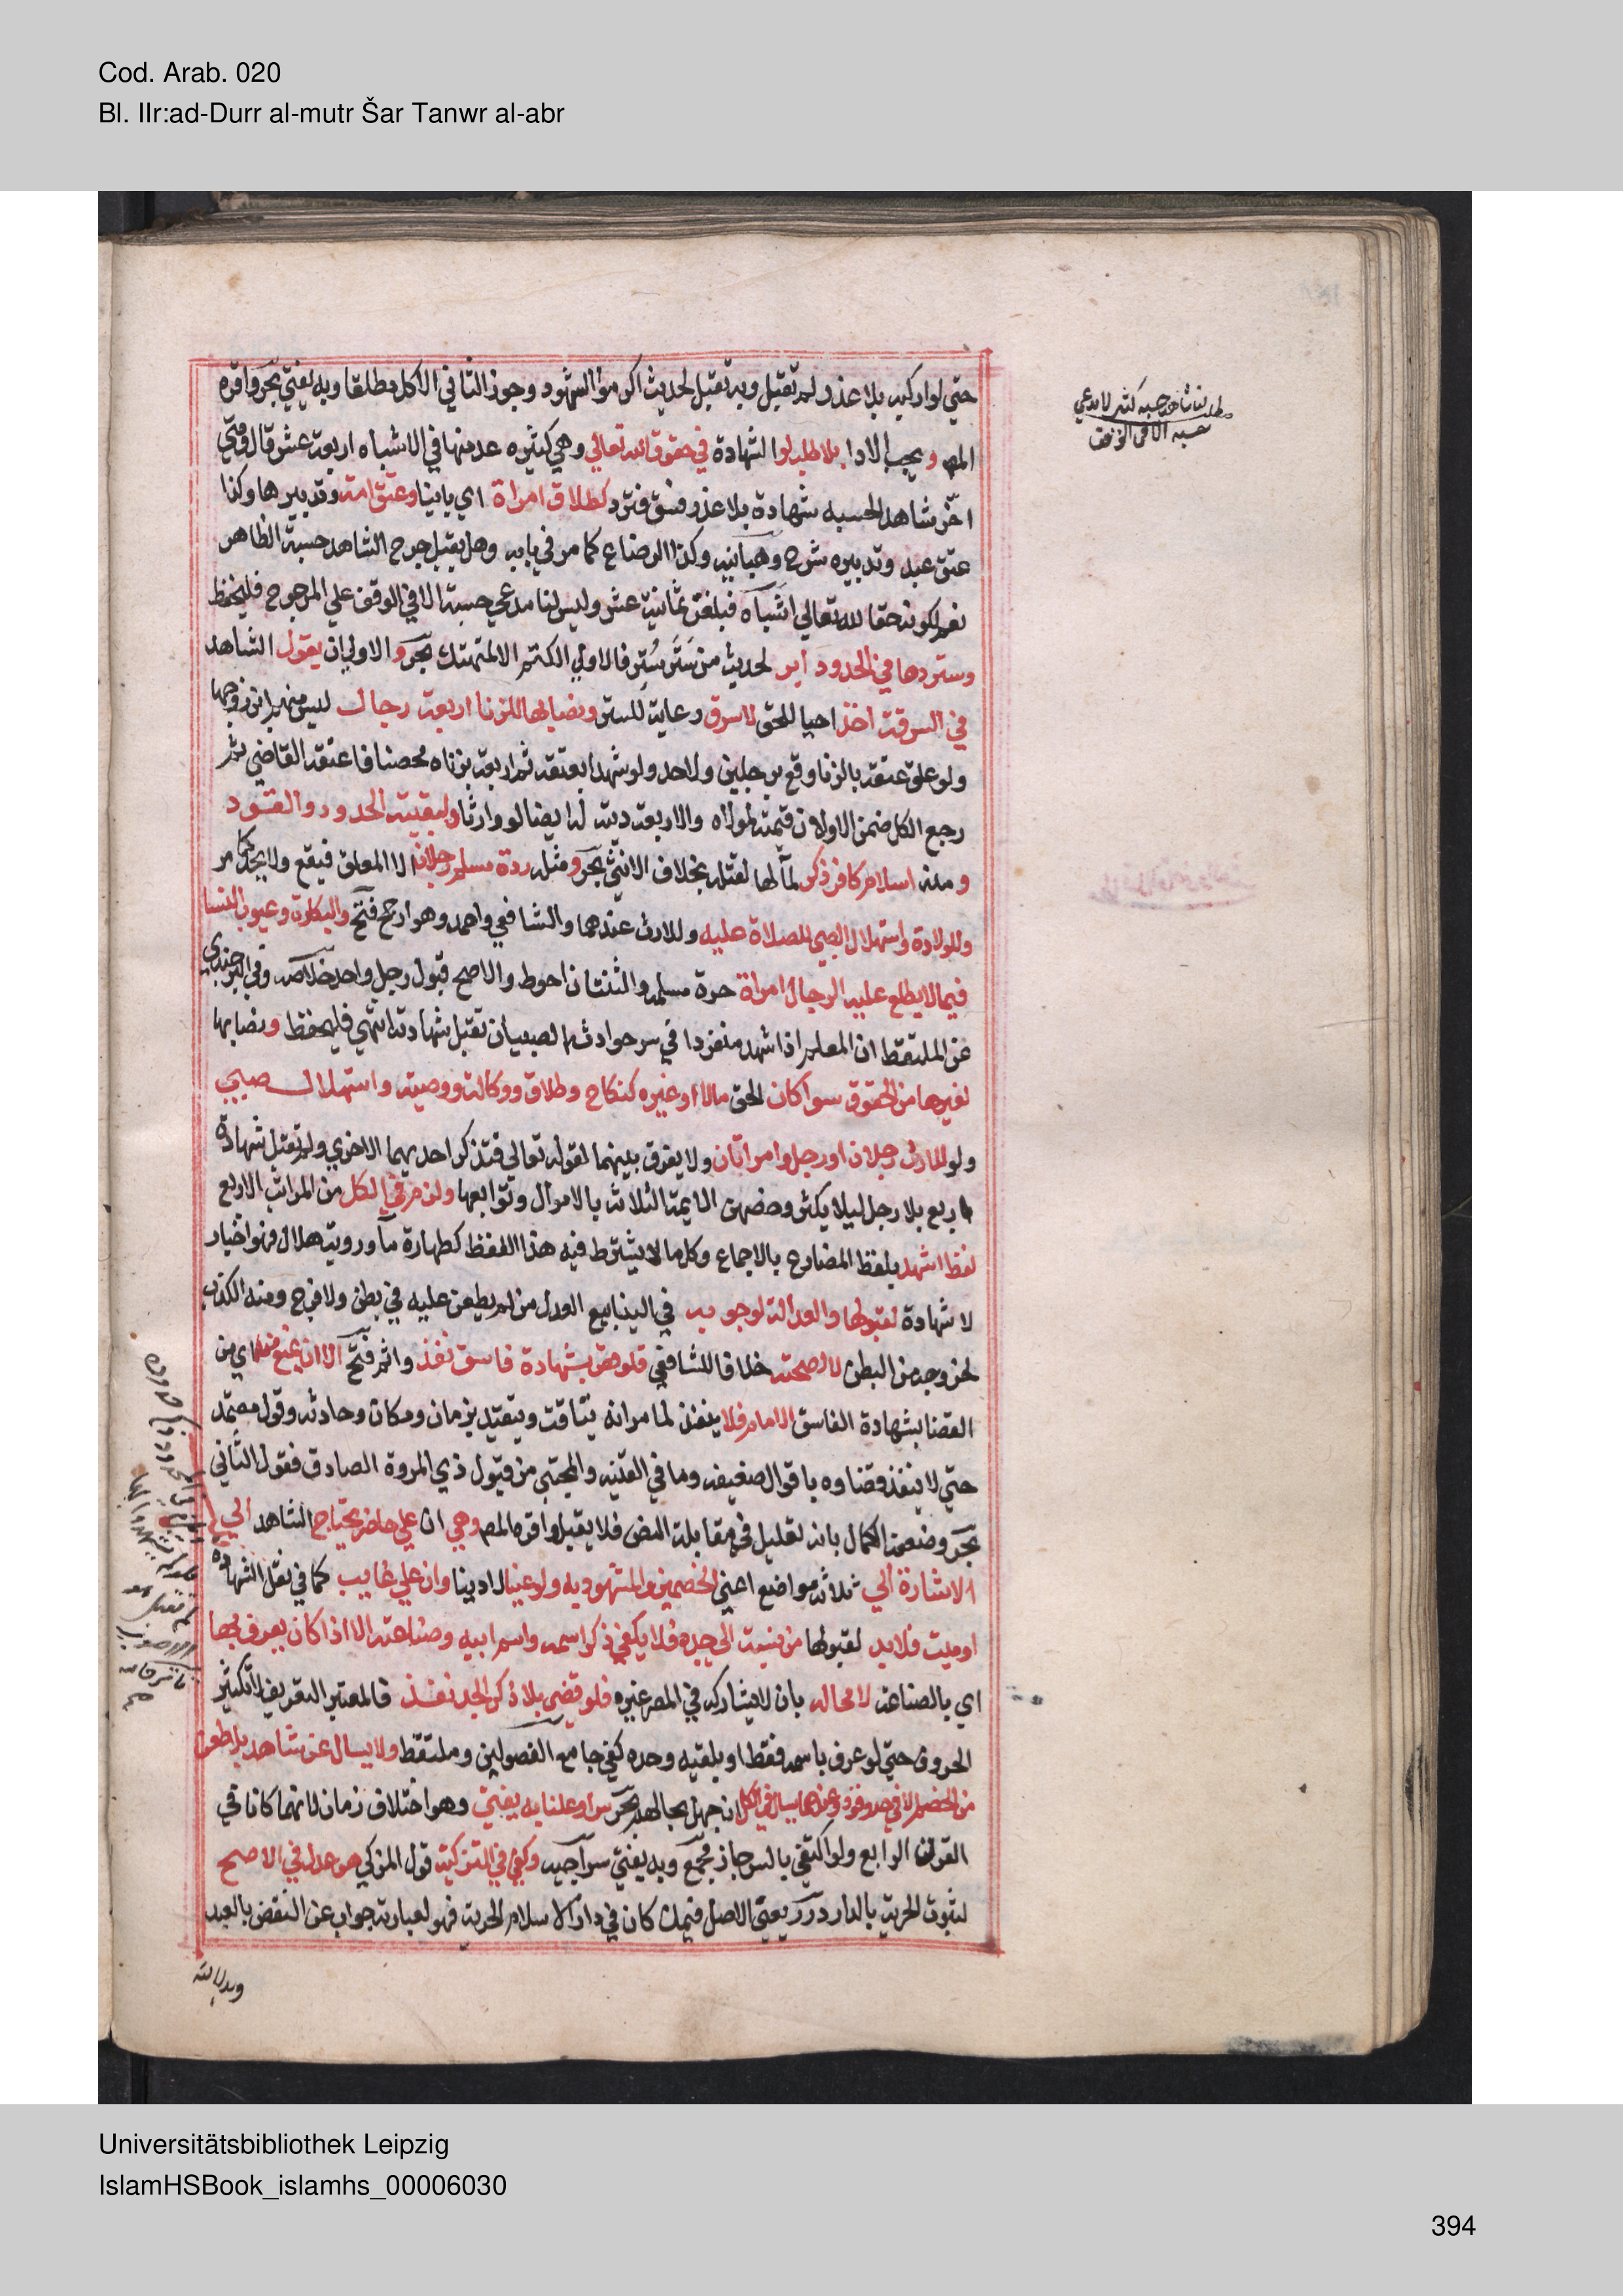 Cod. Arab. 020
Bl. IIr:ad-Durr al-mutr Šar Tanwr al-abr
حتي لو اركبه بلا عذر لم تقبل وبه تقبل لحديث اكرموا الشهود وجوز الثاني الاكل مطلقا وبه يفتي بحر واقره
المص ويجب الادا بلا طلب لو الشهادة في حقوق الله تعالي وهي كثيره عد منها في الاشباه اربعة عشر قال ومتي
اخر شاهد الحسبه شهادة بلا عذر فسق فترد كطلاق امراة اي باينا وعتق امة وتدبيرها وكذا
عتق عبد وتدبيره شرح وهبانيه وكذا الرضاع كما مر في بابه وهل يقبل جرح الشاهد حسبة الظاهر
نعم لكونه حقا لله تعالي اشباه فبلغت ثمانية عشر وليس لنا مدعي حسبة الا في الوقف علي المرجوح فليحفظ
وسترها في الحدود ابر لحديث من سَتَر سُتِر فالاولي الكتم الا لمتهتك بحر و الاولي ان يقول الشاهد
في السرقة اخذ احيا للحق لا سرق رعاية للستر ونصابها للزنا اربعة رجال ليس منهم ابن زوجها
ولو علق عتقه بالزنا وقع برجلين ولا حد ولو شهدا بعتقه ثم اربعة بزناه محصنا فاعتقه القاضي ثم
رجع الكل ضمن الاولان قيمته لمولاه والاربعة ديته له ايضا لو وارثا ولبقية الحدود والقود
ومنه اسلام كافر ذكر لمآلها لقتله بخلاف الانثي بحر ومثله ردة مسلم رجلان الا المعلق فيقع ولا يحد كما مر
وللولادة واستهلال الصبي للصلاة عليه وللارث عندهما والشافعي واحمد وهو ارجح فتح والبكارة وعيوب النسا
فيما لا يطلع عليه الرجال امراة حرة مسلمة والثنتان احوط والاصح قبول رجل واحد خلاصه وفي البرجندي
عن الملتقط ان المعلم اذا شهد منفردا في سر حوادث الصبيان تقبل شهادته انتهي فليحفظ ونصابها
لغيرها من الحقوق سوا كان الحق مالا او غيره كنكاح وطلاق ووكالة ووصية واستهلال صبي
ولو للارث رجلان او رجل وامراتان ولا يفرق بينهما لقوله تعالي فتذكر احديهما الاخري ولم تقبل شهادة
اربع بلا رجل ليلا يكثر وخصهن الايمة الثلاثة بالاموال وتوابعها ولزم في الكل من المراتب الاربع
لفظ اشهد بلفظ المضارع بالاجماع وكل ما لا يشترط فيه هذا اللفظ كطهارة ماء ورويه هلال فهو اخبار
لا شهادة لقبولها والعدالة لوجوبه في الينابيع العدل من لم يطعن عليه في بطن ولا فرج ومنه الكذب
لخروجه من البطن لا لصحته خلافا للشافعي فلو قضي بشهادة فاسق نفذ واثم فتح الا ان يمنع منه اي من
القضا بشهادة الفاسق الامام فلا ينفذ لما مر انه يتاقت ويتقيد بزمان ومكان وحادثه وقول معتمد
حتي لا ينفذ قضاوه باقوال ضعيفه وما في القنيه والمجتبي من قبول ذي المروة الصادق فقول الثاني
بحر وضعفه الكمال بانه تعليل في مقابلة النص فلا يقبل واقره المص وهي ان علي حاضر يحتاج الشاهد الي
الاشارة الي ثلاثة مواضع اعني الخصمين والمشهود به ولو عينا لا دينا وان علي غايب كما في نقل الشهادة
او ميت فلا بد لقبولها من نسبة الي جده فلا يكفي ذكر اسمه واسم ابيه وصناعته الا اذا كان يعرف بها
اي بالصناعة لا محاله بان لا يشاركه في المصر غيره فلو قضي بلا ذكر الجد نفذ فالمعتبر التعريف لا تكثير
الحروف حتي لو عرف باسمه فقط او بلقبه وحده كفي جامع الفصولين وملتقط ولا يسال عن شاهد بلا طعن
من الخصم الا في حد وقود وعندهما يسال في الكل ان جهل بحالهم بحر سرا وعلنا به يفتي وهو اختلاف زمان لانهما كانا في
القرن الرابع ولو اكتفي بالسر جاز مجمع وبه يفتي سراجيه وكفي في التزكية قول المزكي هو عدل في الاصح
لثبوت الحرية بالدار درر يعني الاصل فيمن كان في دار الاسلام الحرية فهو لعبارته جواب عن النقض بالعبد
وبدلالته
مطلب لنا شاهد حسبه كثير لا مدعي
حسبه الا في الوقف
Universitätsbibliothek Leipzig
IslamHSBook_islamhs_00006030
394